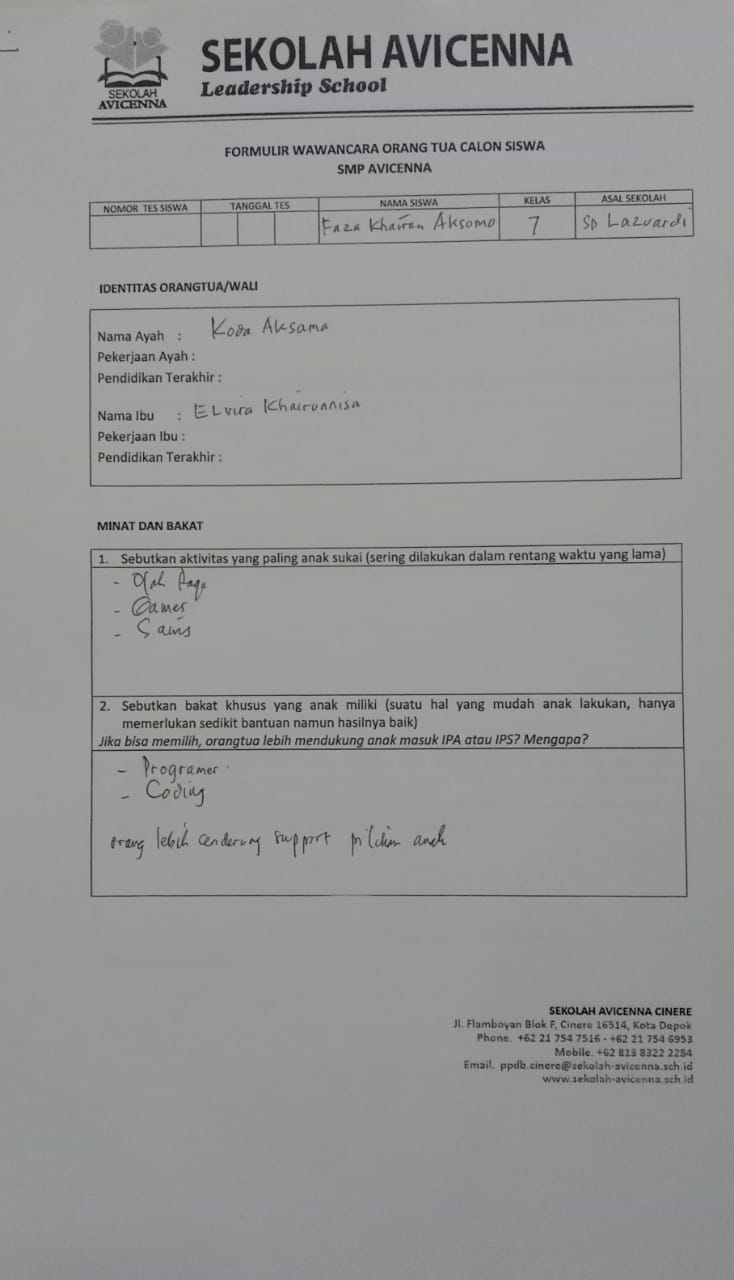 SEKOLAH AVICENNA
Leadership School
SEKOLAH
AVICENNA
FORMULIR WAWANCARA ORANG TUA CALON SISWA
SMP AVICENNA
NOMOR TES SISWA TANGGAL TES NAMA SISWA KELAS ASAL SEKOLAH
Faza Khairan Aksomo 7 SD Lazuardi
IDENTITAS ORANGTUA/WALI
Nama Ayah : Aksama
Pekerjaan Ayah :
Pendidikan Terakhir :
Nama Ibu : Elvira Khairunnisa
Pekerjaan Ibu :
Pendidikan Terakhir :
MINAT DAN BAKAT
1. Sebutkan aktivitas yang paling anak sukai (sering dilakukan dalam rentang waktu yang lama)
- Olah Raga
- Games
- Sains
2. Sebutkan bakat khusus yang anak miliki (suatu hal yang mudah anak lakukan, hanya
memerlukan sedikit bantuan namun hasilnya baik)
Jika bisa memilih, orangtua lebih mendukung anak masuk IPA atau IPS? Mengapa?
- Programer
- Coding
orang lebih cenderung support pilihan anak
SEKOLAH AVICENNA CINERE
Jl. Flamboyan Blok F, Cinere 16514, Kota Depok
Phone. +62 21 754 7516 - +62 21 754 6953
Mobile. +62 813 8322 2254
Email. ppdb.cinere@sekolah-avicenna.sch.id
www.sekolah-avicenna.sch.id